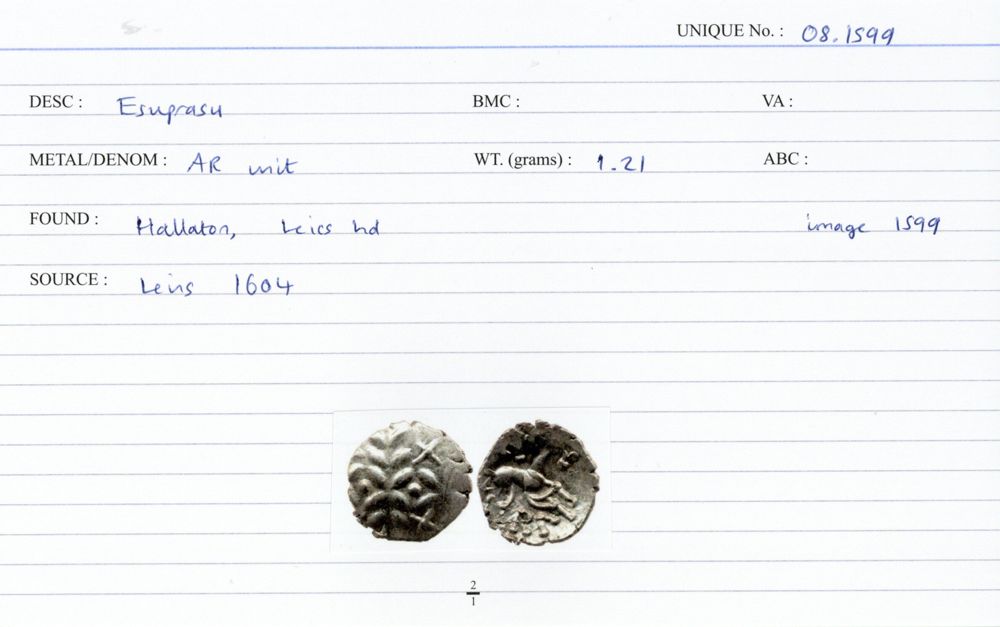 UNIQUE No. : 08.1599
DESC : Esuprasu BMC : VA :
METAL/DENOM : AR unit WT. (grams) : 1.21 ABC :
FOUND : Hallaton, Leics hd image 1599
SOURCE : Leins 1604
2
1